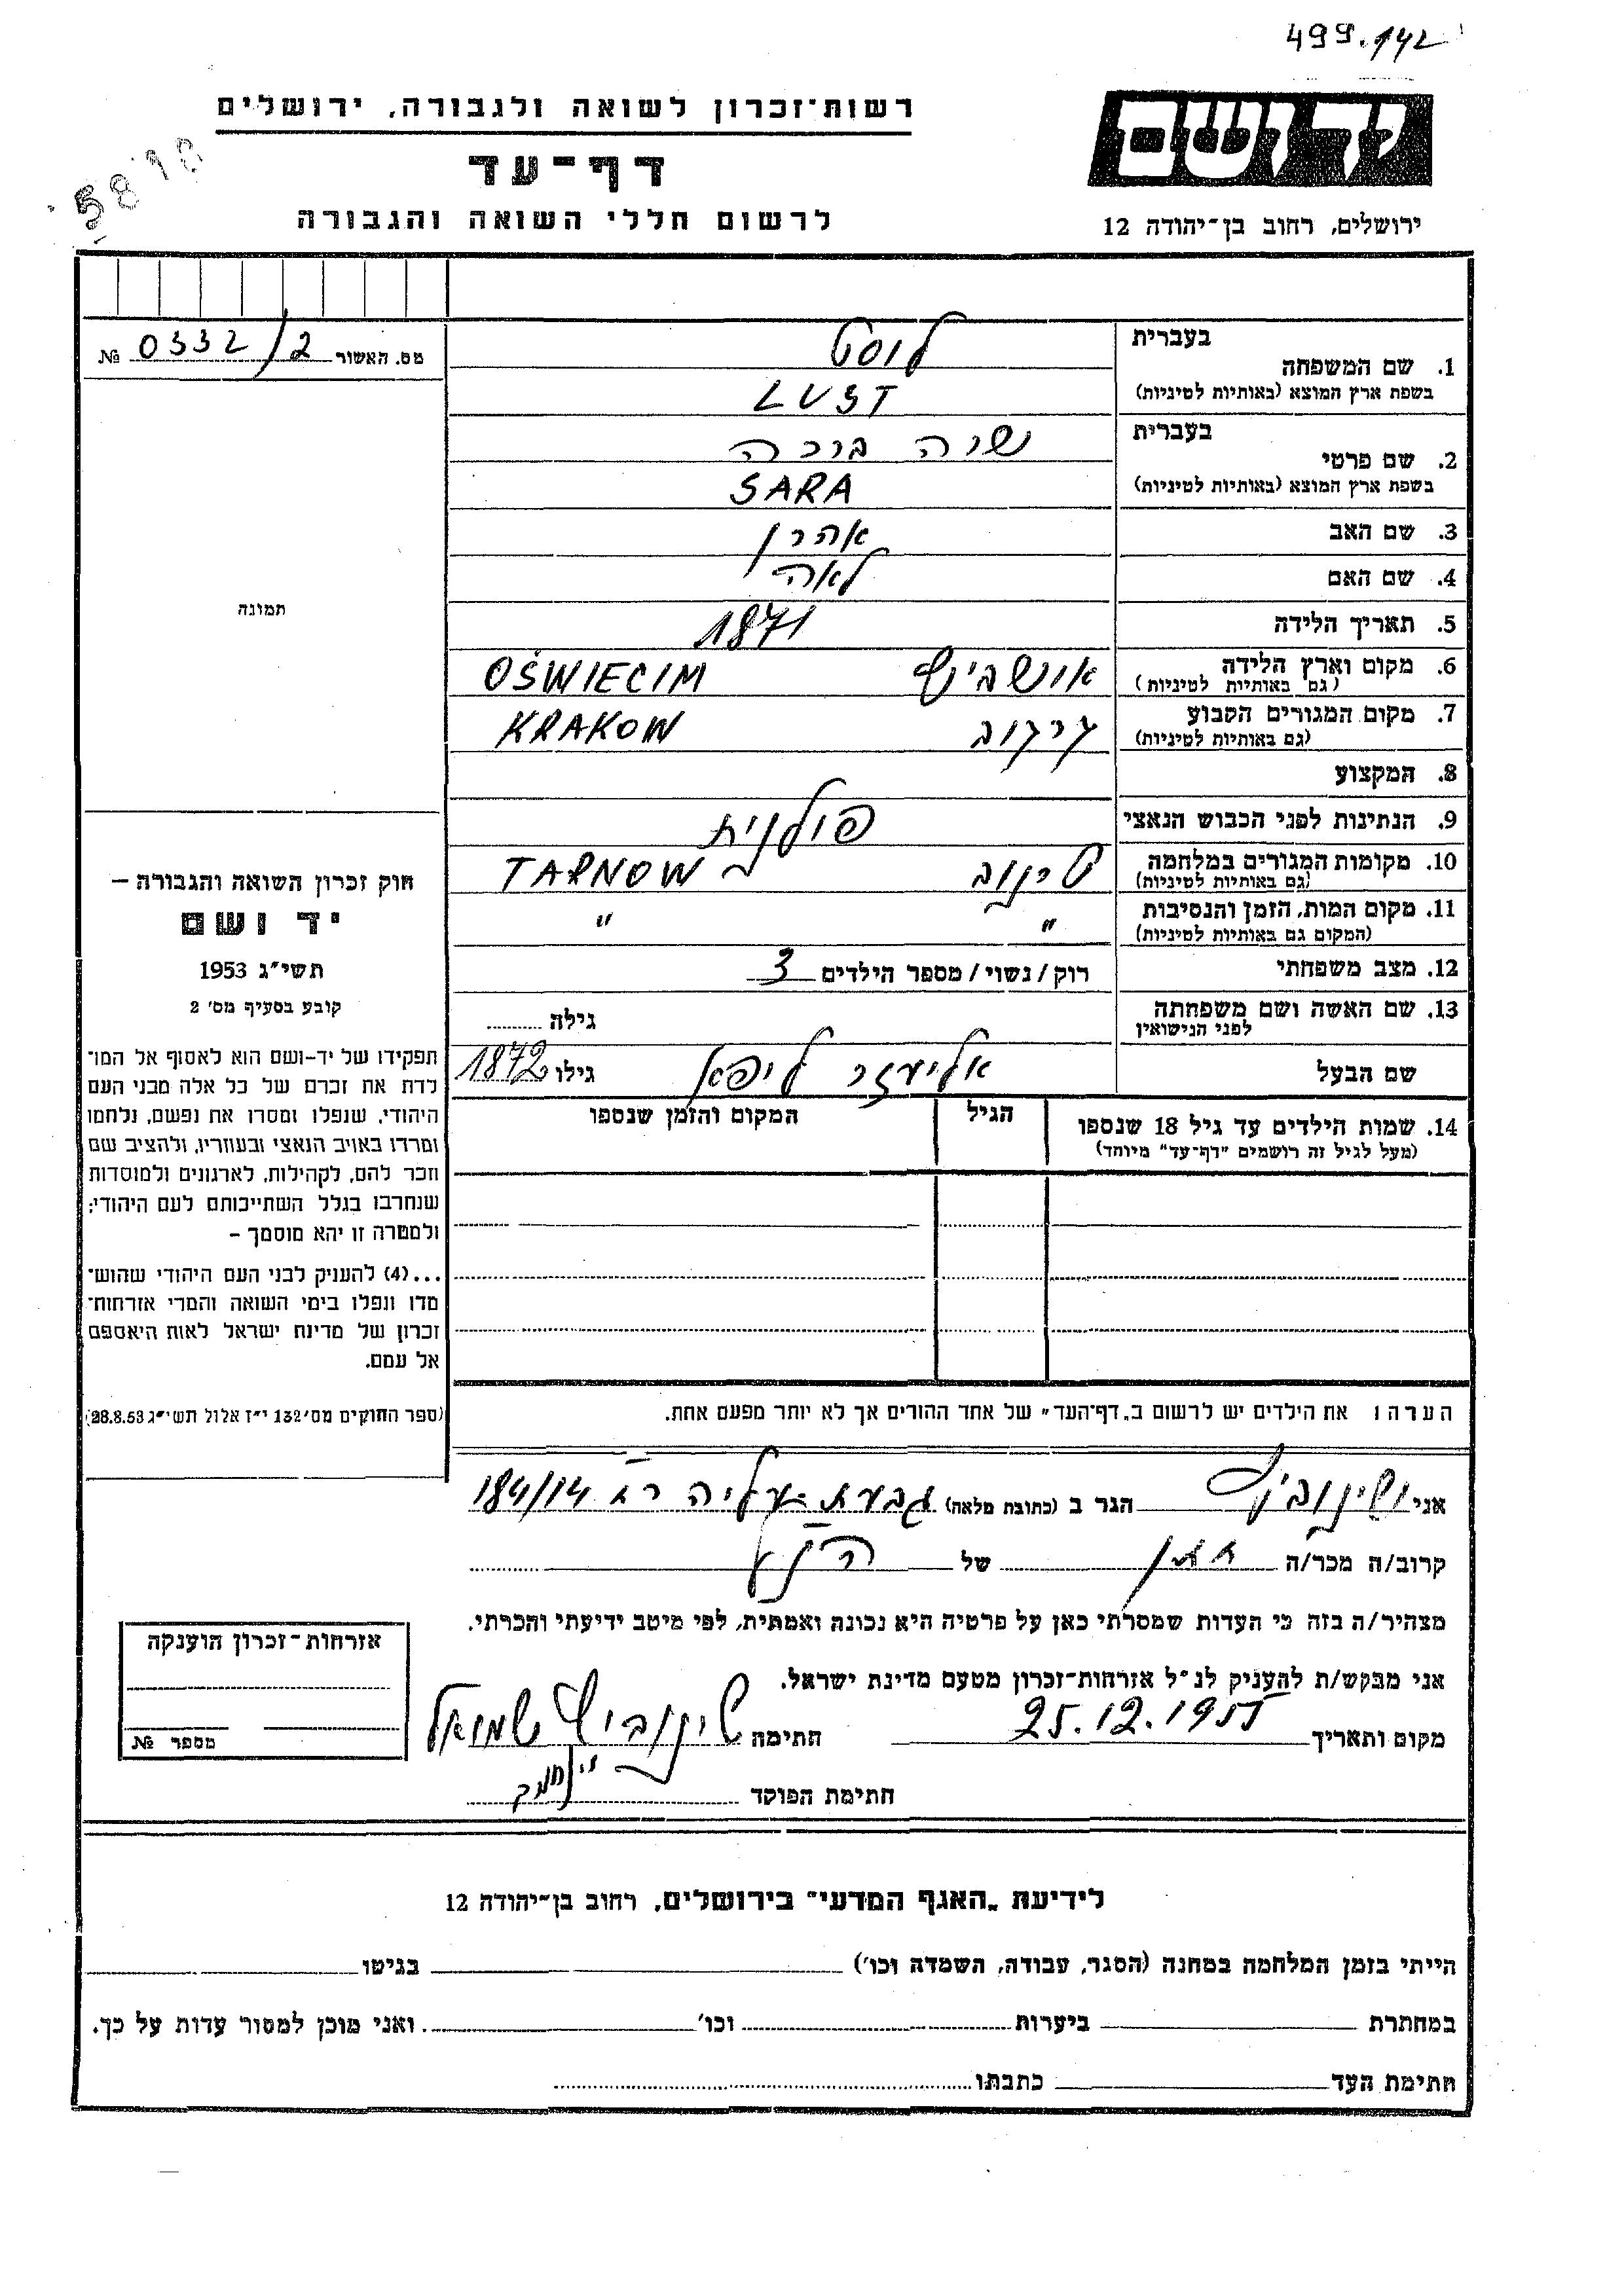 499.142
רשות־זכרון לשואה ולגבורה, ירושלים
יד ושם
5818
דף־עד
לרשום חללי השואה והגבורה
ירושלים, רחוב בן־יהודה 12
מס. האשור 0332/2 №
תמונה
1. שם המשפחה
בעברית לוסט
בשפת ארץ המוצא (באותיות לטיניות) LUST
2. שם פרטי
בעברית שרה ברכה
בשפת ארץ המוצא (באותיות לטיניות) SARA
3. שם האב אהרן
4. שם האם לאה
5. תאריך הלידה 1871
6. מקום וארץ הלידה OŚWIECIM
(גם באותיות לטיניות)
7. מקום המגורים הקבוע קרקוב KRAKOW
(גם באותיות לטיניות)
8. המקצוע
9. הנתינות לפני הכבוש הנאצי פולנית
10. מקומות המגורים במלחמה טרנוב TARNOW
(גם באותיות לטיניות)
11. מקום המות, הזמן והנסיבות " "
(המקום גם באותיות לטיניות)
12. מצב משפחתי רוק/נשוי/מספר הילדים 3
13. שם האשה ושם משפחתה גילה
לפני הנישואין
שם הבעל אליעזר ליפא גילו 1872
14. שמות הילדים עד גיל 18 שנספו הגיל המקום והזמן שנספו
(מעל לגיל זה רושמים "דף־עד" מיוחד)
חוק זכרון השואה והגבורה –
יד ושם
תשי"ג 1953
קובע בסעיף מס' 2
תפקידו של יד-ושם הוא לאסוף אל המו־
לדת את זכרם של כל אלה מבני העם
היהודי, שנפלו ומסרו את נפשם, נלחמו
ומרדו באויב הנאצי ובעוזריו, ולהציב שם
וזכר להם, לקהילות, לארגונים ולמוסדות
שנחרבו בגלל השתייכותם לעם היהודי;
ולמטרה זו יהא מוסמך –
...(4) להעניק לבני העם היהודי שהוש־
מדו ונפלו בימי השואה והמרי אזרחות־
זכרון של מדינת ישראל לאות היאספם
אל עמם.
(ספר החוקים מס' 132 י"ז אלול תשי"ג 28.8.53)
הערה: את הילדים יש לרשום ב„דף־העד" של אחד ההורים אך לא יותר מפעם אחת.
אני הגר ב (כתובת מלאה) גבעת עליה 184/14
קרוב/ה מכר/ה חתן של הנ"ל
מצהיר/ה בזה כי העדות שמסרתי כאן על פרטיה היא נכונה ואמתית, לפי מיטב ידיעתי והכרתי.
אני מבקש/ת להעניק לנ"ל אזרחות־זכרון מטעם מדינת ישראל.
מקום ותאריך 25.12.1955 חתימה שמואל
חתימת הפוקד
אזרחות־זכרון הוענקה
מספר №
לידיעת „האגף המדעי" בירושלים, רחוב בן־יהודה 12
הייתי בזמן המלחמה במחנה (הסגר, עבודה, השמדה וכו') בגיטו
במחתרת ביערות וכו' ואני מוכן למסור עדות על כך.
חתימת העד כתבתו